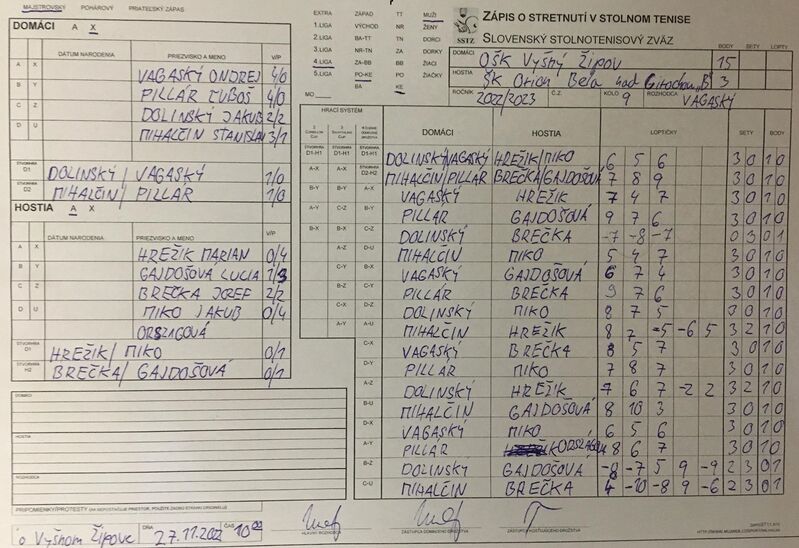 MAJSTROVSKÝ POHÁROVÝ PRIATEĽSKÝ ZÁPAS
DOMÁCI A X
DÁTUM NARODENIA PRIEZVISKO A MENO V/P
A X VAGASKÝ ONDREJ 4/0
B Y PILLÁR ĽUBOŠ 4/0
C Z DOLINSKÝ JAKUB 2/2
D U MIHALČIN STANISLAV 3/1
ŠTVORHRA D1 DOLINSKÝ / VAGASKÝ 1/0
ŠTVORHRA D2 MIHALČIN / PILLÁR 1/0
HOSTIA A X
DÁTUM NARODENIA PRIEZVISKO A MENO V/P
A X HREŽIK MARIAN 0/4
B Y GAJDOŠOVÁ LUCIA 1/3
C Z BREČKA JOZEF 2/2
D U MIKO JAKUB 0/4
ORSZÁGOVÁ
ŠTVORHRA D1 HREŽIK / MIKO 0/1
ŠTVORHRA H2 BREČKA / GAJDOŠOVÁ 0/1
DOMÁCI
HOSTIA
ROZHODCA
PRIPOMIENKY/PROTESTY (AK NEPOSTAČUJE PRIESTOR, POUŽITE ZADNÚ STRANU ORIGINÁLU)
Vo Vyšnom Žipove DŇA 27.11.2022 ČAS 10:00
EXTRA ZÁPAD TT MUŽI
1.LIGA VÝCHOD NR ŽENY
2.LIGA BA-TT TN DORCI
3.LIGA NR-TN ZA DORKY
4.LIGA ZA-BB BB ŽIACI
5.LIGA PO-KE PO ŽIAČKY
BA KE
MO
SSTZ
ZÁPIS O STRETNUTÍ V STOLNOM TENISE
SLOVENSKÝ STOLNOTENISOVÝ ZVÄZ
BODY SETY LOPTY
DOMÁCI OŠK Vyšný Žipov 15
HOSTIA ŠK Orion Belá nad Cirochou „B" 3
ROČNÍK 2022/2023 Č.Z. KOLO 9 ROZHODCA VAGASKÝ
HRACÍ SYSTÉM DOMÁCI HOSTIA LOPTIČKY SETY BODY
D1-H1 D1-H1 D1-H1 DOLINSKÝ/VAGASKÝ HREŽIK/MIKO 6 5 6 3 0 1 0
A-X A-X D2-H2 MIHALČIN/PILLÁR BREČKA/GAJDOŠOVÁ 7 8 9 3 0 1 0
B-Y B-Y A-X VAGASKÝ HREŽIK 7 4 7 3 0 1 0
A-Y C-Z B-Y PILLÁR GAJDOŠOVÁ 9 7 6 3 0 1 0
B-X B-X C-Z DOLINSKÝ BREČKA -7 -8 -7 0 3 0 1
A-Z D-U MIHALČIN MIKO 5 4 7 3 0 1 0
C-Y B-X VAGASKÝ GAJDOŠOVÁ 6 7 4 3 0 1 0
B-Z PILLÁR BREČKA 9 7 6 3 0 1 0
C-X D-Z DOLINSKÝ MIKO 8 7 5 3 0 1 0
A-Y A-U MIHALČIN HREŽIK 8 7 -5 -6 5 3 2 1 0
C-X VAGASKÝ BREČKA 8 5 7 3 0 1 0
D-Y PILLÁR MIKO 7 8 7 3 0 1 0
A-Z DOLINSKÝ HREŽIK 7 6 7 -2 2 3 2 1 0
B-U MIHALČIN GAJDOŠOVÁ 8 10 3 3 0 1 0
D-X VAGASKÝ MIKO 6 5 6 3 0 1 0
A-Y PILLÁR 8 6 7 3 0 1 0
B-Z DOLINSKÝ GAJDOŠOVÁ -8 -7 5 9 -9 2 3 0 1
C-U MIHALČIN BREČKA 4 -10 -8 9 -6 2 3 0 1
HLAVNÝ ROZHODCA ZÁSTUPCA DOMÁCEHO DRUŽSTVA ZÁSTUPCA HOSŤUJÚCEHO DRUŽSTVA